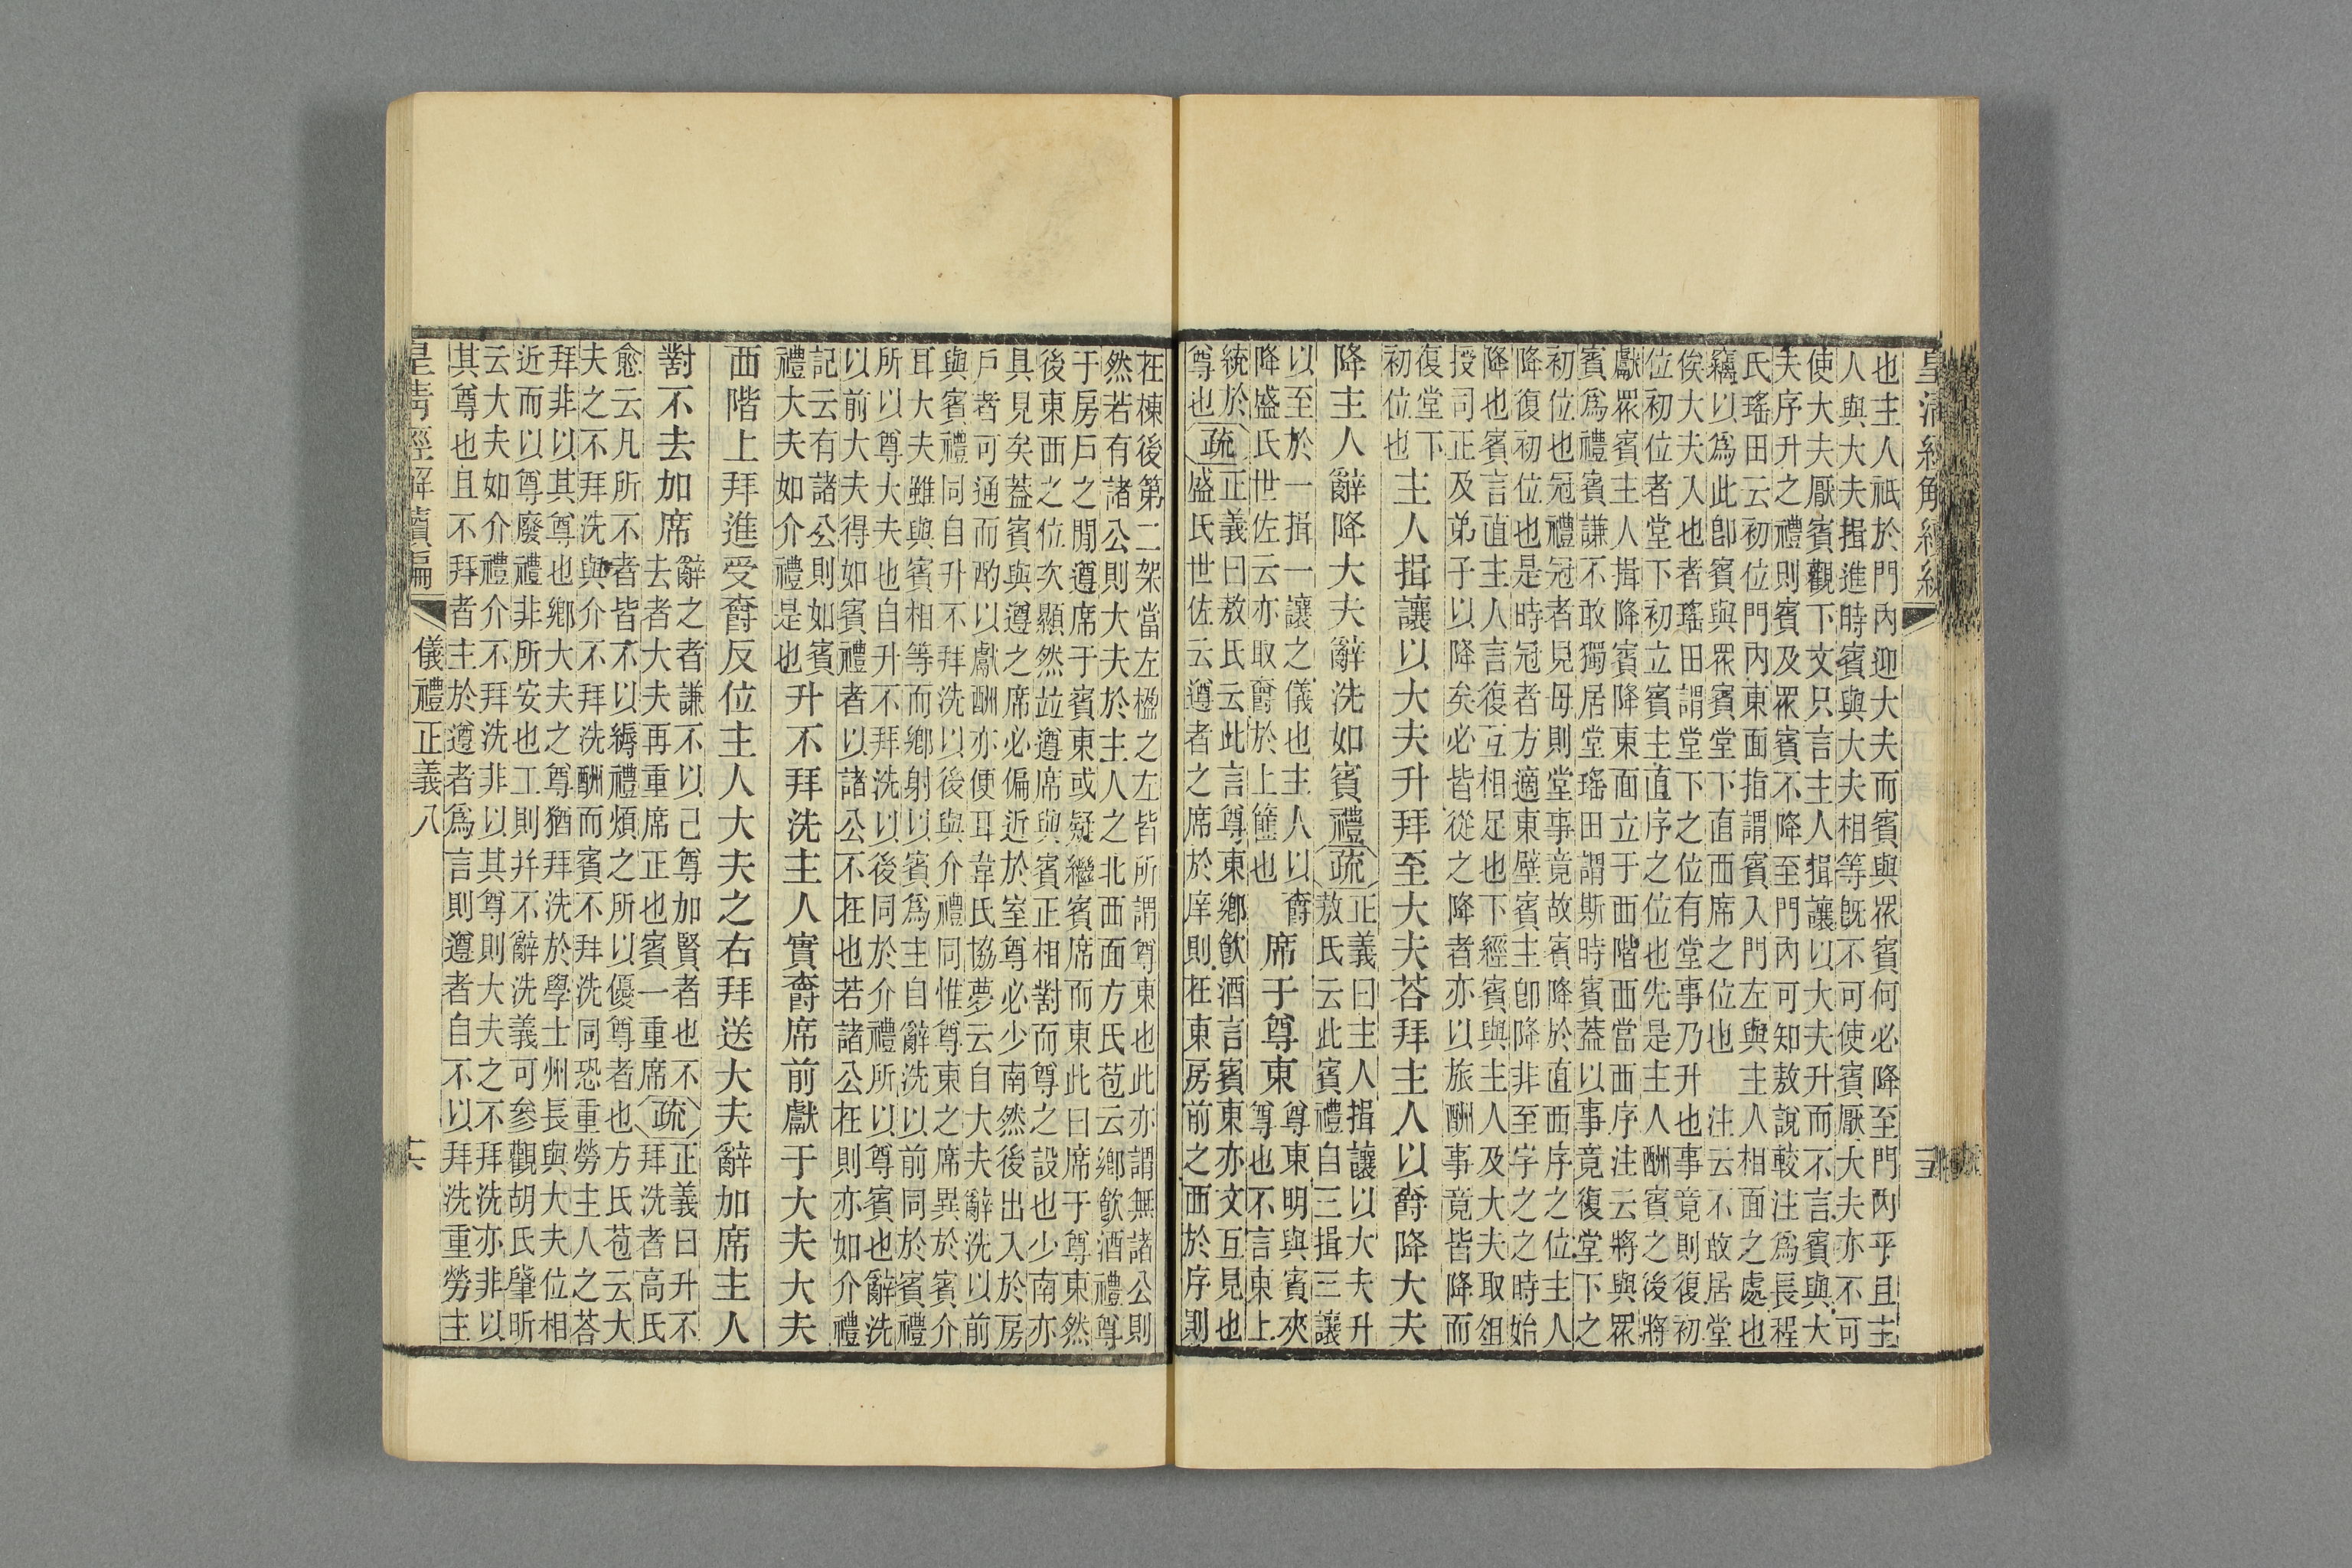 皇清經解續編
也主人祇於門內迎大夫而賓與眾賓何必降至門內乎且主
人與大夫揖進時賓與大夫相等旣不可使賓厭大夫亦不可
使大夫厭賓觀下文只言主人揖讓以大夫升而不言賓與大
夫序升之禮則賓及眾賓不降至門內可知敖說較注爲長程
氏瑤田云初位門內東面指謂賓入門左與主人相面之處也
竊以爲此卽賓與眾賓堂下直西席之位也注云不敢居堂
俟大夫入也者瑤田謂堂下之位有堂事乃升也事竟則復初
位初位者堂下初立賓主直序之位也先是主人酬賓之後將
獻眾賓主人揖降賓降東面立于西階西當西序注云將與眾
賓爲禮賓謙不敢獨居堂瑤田謂斯時賓蓋以事竟復堂下之
初位也冠禮冠者見母則堂事竟故賓降於直西序之位主人
降復初位也是時冠者方適東壁賓主卽降非至字之之時始
降也賓言直主人言復互相足也下經賓與主人及大夫取俎
授司正及弟子以降矣必皆從之降者亦以旅酬事竟皆降而
復堂下
初位也
主人揖讓以大夫升拜至大夫荅拜主人以爵降大夫
降主人辭降大夫辭洗如賓禮
疏
正義曰主人揖讓以大夫升
敖氏云此賓禮自三揖三讓
以至於一揖一讓之儀也主人以爵
降盛氏世佐云亦取爵於上篚也
席于尊東
尊東明與賓夾
尊也不言東上
統於
尊也
疏
正義曰敖氏云此言尊東鄉飲酒言賓東亦文互見也
盛氏世佐云遵者之席於庠則在東房前之西於序則
在棟後第二架當左楹之左皆所謂尊東也此亦謂無諸公則
然若有諸公則大夫於主人之北西面方氏苞云鄉飲酒禮尊
于房戶之間遵席于賓東或疑繼賓席而東此曰席于尊東然
後東西之位次顯然竝遵席與賓正相對而尊之設也少南亦
具見矣蓋賓與遵之席必偏近於室尊必少南然後出入於房
戶者可通而酌以獻酬亦便耳韋氏協夢云自大夫辭洗以前
與賓禮同自升不拜洗以後與介禮同惟尊東之席異於賓介
耳大夫雖與賓相等而鄉射以賓爲主自辭洗以前同於賓禮
所以尊大夫也自升不拜洗以後同於介禮所以尊賓也辭洗
以前大夫得如賓禮者以諸公不在也若諸公在則亦如介禮
記云有諸公則如賓
禮大夫如介禮是也
升不拜洗主人實爵席前獻于大夫大夫
西階上拜進受爵反位主人大夫之右拜送大夫辭加席主人
對不去加席
辭之者謙不以己尊加賢者也不
去者大夫再重席正也賓一重席
疏
正義曰升不
拜洗者高氏
愈云凡所不者皆不以縟禮煩之所以優尊者也方氏苞云大
夫之不拜洗與介不拜洗酬而賓不拜洗同恐重勞主人之荅
拜非以其尊也鄉大夫之尊猶拜洗於學士州長與大夫位相
近而以尊廢禮非所安也工則幷不辭洗義可參觀胡氏肇昕
云大夫如介禮介不拜洗非以其尊則大夫之不拜洗亦非以
其尊也且不拜者主於遵者爲言則遵者自不以拜洗重勞主
皇清經解續編 儀禮正義八